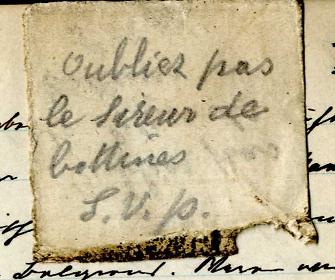 oubliez pas
le Sireur de
bottines
S.V.p.